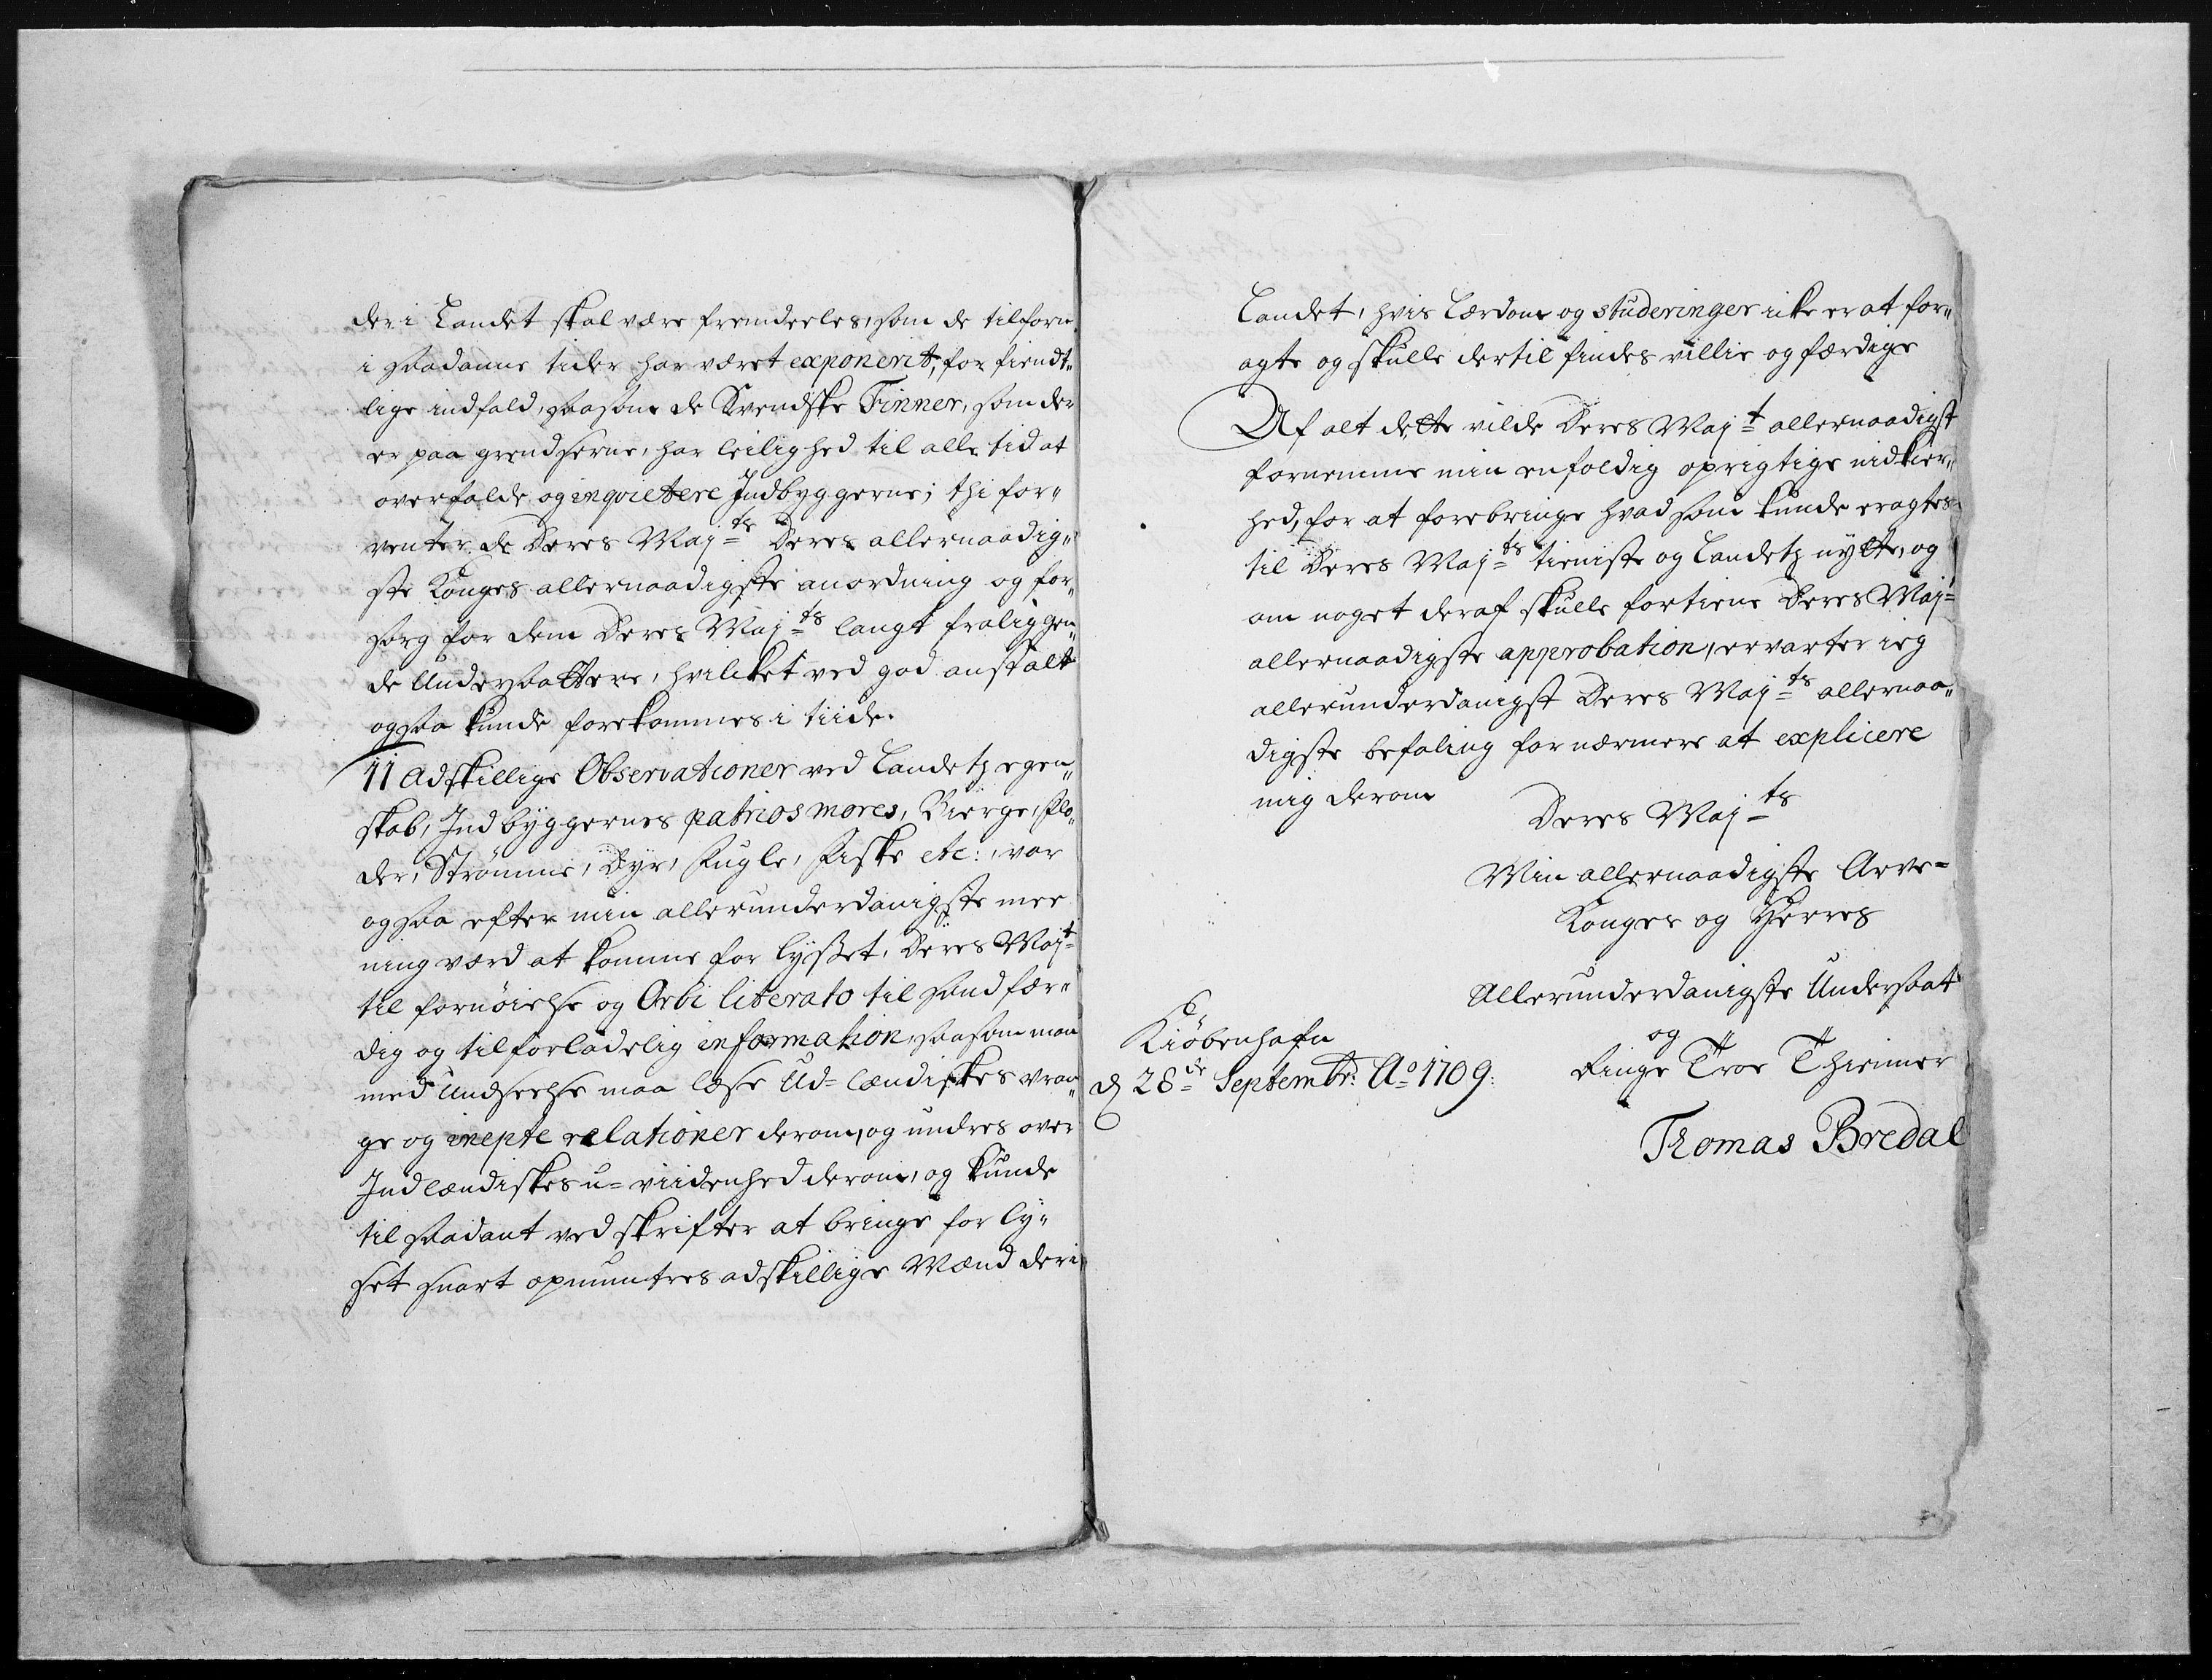 der i Landet skal være fremdeeles, som de tilforn
i saadanne tider har været exponerit, for fiendt„
lige indfald, saasom de Svendske Finner, som der
er paa grendserne, har leilighed til alle tid at
overfalde og inqvietere Indbyggerne; thi for„
venter de Deres Maj=ts Deres allernaadig„
ste Konges allernaadigste anordning og for„
sorg for dem Deres Maj=ts langt fraliggen„
de Undersaattere, hvilcket ved god anstalt
ogsaa kunde forekommes i tiide.
11 Adskillige Observationer ved Landetz egen„
skab, Indbyggernes patrios mores, Bierge, Flo„
der, Strømme, Dyr, Fugle, Fiske etc:, var
ogsaa efter min allerunderdanigste mee
ning værd at komme for lyßet, Deres Maj=t
til fornøielse og Orbi literato til sandfær„
dig og tilforladelig information, saasom man
med Undseelse maa læse Ud=lændiskes vran„
ge og inepte relationer derom, og undres over
Indlændiskes u=viidenhed derom, og kunde
til saadant ved skrifter at bringe for ly„
set snart opmuntres adskillige Mænd der i
Landet, hvis Lærdom og studeringer icke er at for„
agte og skulle dertil findes villie og færdige
Af alt dette vilde Deres Maj=t allernaadigst
fornemme min enfoldig oprigtige nidkier„
hed, for at forebringe hvad som kunde eragtes
til Deres Maj=ts tieniste og Landetz nytte, og
om noget deraf skulle fortiene Deres Maj=
allernaadigste approbation, ervarter ieg
allerunderdanigst Deres Maj=ts allernaa„
digste befaling for nærmere at explicere
mig derom
Deres Maj=ts
Min allernaadigste Arve=
Konges og Herres
Allerunderdanigste Undersaat
og
Kiøbenhafn
Ringe Troe Thienner
d 28de Septembr: Ao 1709:
Thomas Bredal